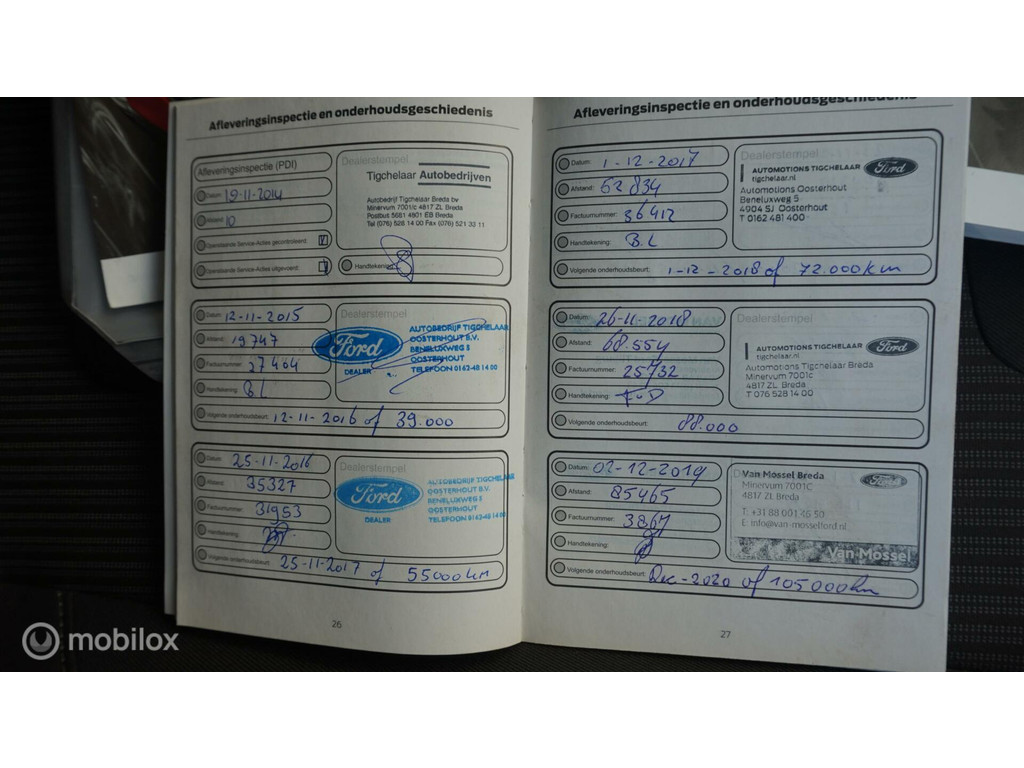 Afleveringsinspectie en onderhoudsgeschiedenis
Afleveringsinspectie (PDI)
Datum: 19-11-2014
Afstand: 10
Openstaande Service-Acties gecontroleerd:
Openstaande Service-Acties uitgevoerd:
Dealerstempel
Tigchelaar Autobedrijven
Autobedrijf Tigchelaar Breda bv
Minervum 7001c 4817 ZL Breda
Postbus 5661 4801 EB Breda
Tel (076) 528 14 00 Fax (076) 521 33 11
Handtekening:
Datum: 12-11-2015
Afstand: 19747
Factuurnummer: 27404
Handtekening: B.L
Dealerstempel
Ford
DEALER
AUTOBEDRIJF TIGCHELAAR
OOSTERHOUT B.V.
BENELUXWEG 5
OOSTERHOUT
TELEFOON 0162-48 14 00
Volgende onderhoudsbeurt: 12-11-2016 of 39.000
Datum: 25-11-2016
Afstand: 35327
Factuurnummer: 31953
Handtekening:
Dealerstempel
Ford
DEALER
AUTOBEDRIJF TIGCHELAAR
OOSTERHOUT B.V.
BENELUXWEG 5
OOSTERHOUT
TELEFOON 0162-48 14 00
Volgende onderhoudsbeurt: 25-11-2017 of 55000km
26
Afleveringsinspectie en onderhoudsgeschiedenis
Datum: 1-12-2017
Afstand: 52834
Factuurnummer: 36412
Handtekening: B.L
Dealerstempel
AUTOMOTIONS TIGCHELAAR
tigchelaar.nl
Ford
Automotions Oosterhout
Beneluxweg 5
4904 SJ Oosterhout
T 0162 481 400
Volgende onderhoudsbeurt: 1-12-2018 of 72.000km
Datum: 26-11-2018
Afstand: 68.554
Factuurnummer: 25732
Handtekening:
Dealerstempel
AUTOMOTIONS TIGCHELAAR
tigchelaar.nl
Ford
Automotions Tigchelaar Breda
Minervum 7001c
4817 ZL Breda
T 076 528 14 00
Volgende onderhoudsbeurt: 88.000
Datum: 02-12-2019
Afstand: 85465
Factuurnummer: 3867
Handtekening:
Dealerstempel
Van Mossel Breda
Minervum 7001C
4817 ZL Breda
T: +31 88 001 46 50
E: info@van-mosselford.nl
Ford
Van Mossel
Volgende onderhoudsbeurt: Dec-2020 of 105000km
27
mobilox